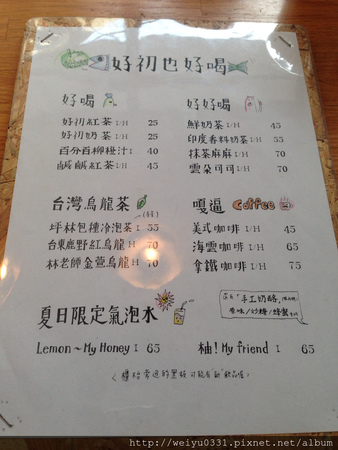 好初也好喝
好喝
好初紅茶 I/H 25
好初奶茶 I/H 25
百分百柳橙汁 I 40
鹹鹹紅茶 I/H 45
好好喝
鮮奶茶 I/H 45
印度香料奶茶 I/H 55
抹茶麻麻 I/H 70
雲朵可可 I/H 70
台灣烏龍茶
坪林包種冷泡茶 I 55
台東鹿野紅烏龍 H 70
林老師金萱烏龍 H 70
嘎逼 Coffee
美式咖啡 I/H 45
海雲咖啡 I/H 65
拿鐵咖啡 I/H 75
還有"手工奶酪
原味/沙糖/蜂蜜
夏日限定氣泡水
Lemon~My Honey I 65
柚! My friend I 65
http://weiyu0331.pixnet.net/album